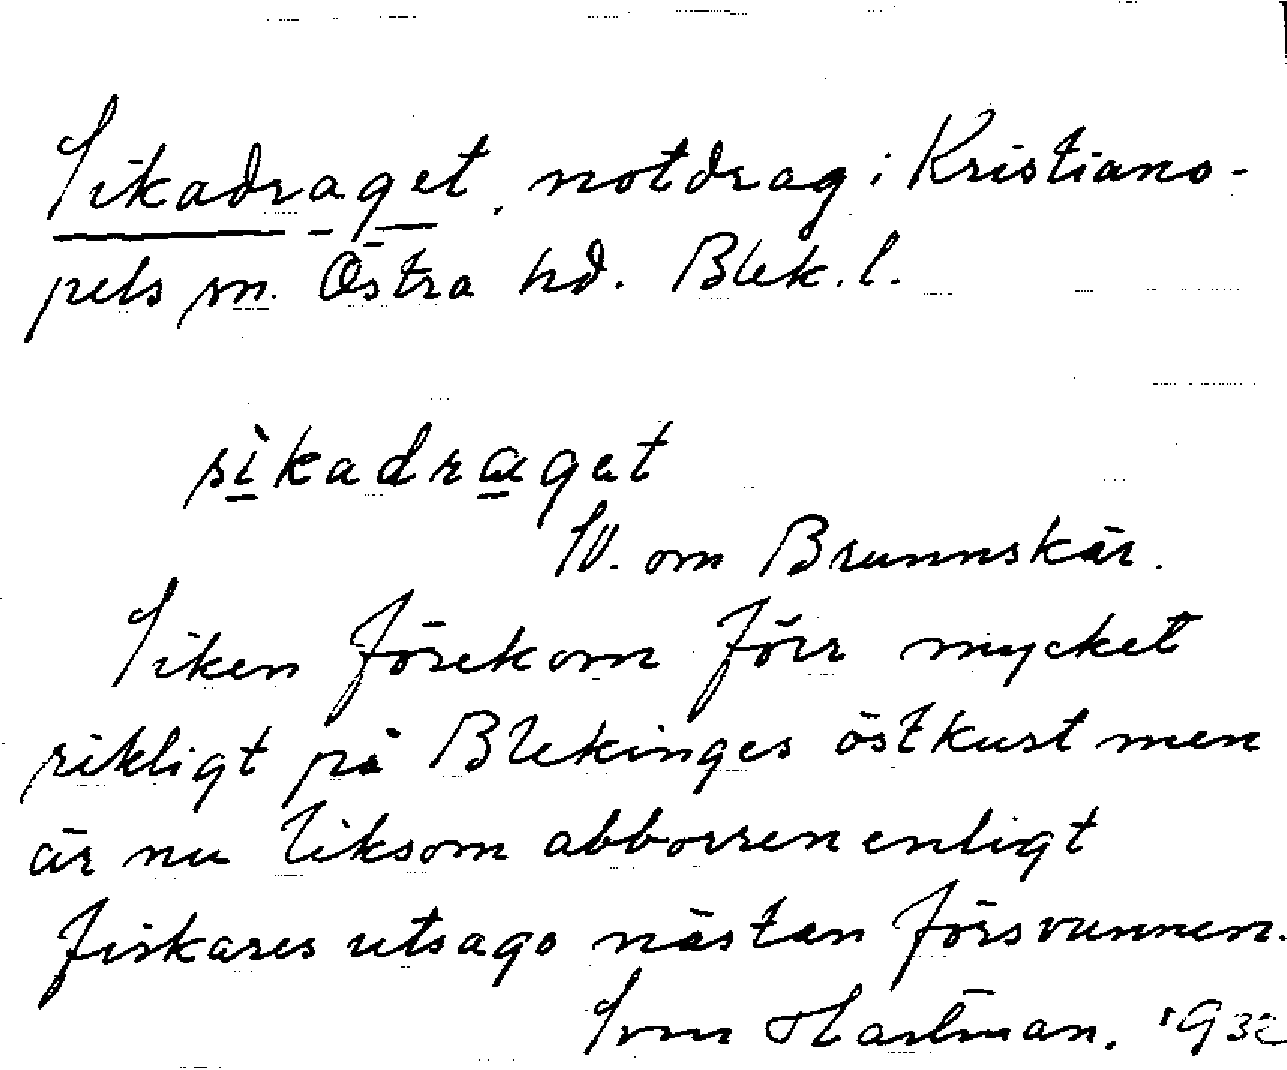 Sikadraget, notdrag i Kristiano-
pels sn. Östra hd. Blek. l.
sìkadraget
SV. om Brunnskär.
Siken förekom förr mycket
rikligt på Blekinges östkust men
är nu liksom abborren enligt
fiskares utsago nästan försvunnen.
Sven Hartman. 193